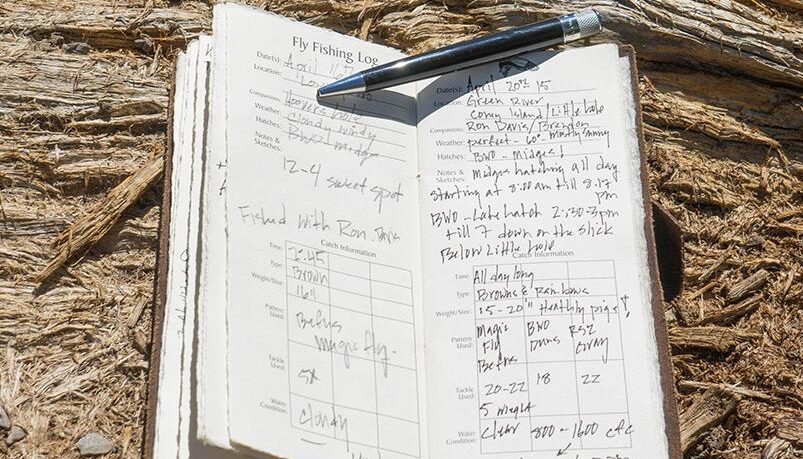 Fly Fishing Log
Date(s): April 16th
Location:
Companions: Hoovers hole
Weather: Cloudy windy
Hatches: BWO midge
Notes &
Sketches:
12-4 sweet spot
Fished with Ron Davis
Catch Information
Time: 2:45
Type: Brown
Weight/Size: 16"
Pattern
Used: Befus
Magic fly.
Tackle
Used: 5x
Water
Condition: Cloudy
Date(s): April 20th 15
Location: Green River
Coney Island/Little hole
Companions: Ron Davis/Brendon
Weather: perfect - 60° Mostly Sunny
Hatches: BWO - Midges!
Notes &
Sketches: Midges hatching all day
starting at 8:00 am till 8:17
pm
BWO - Late hatch 2:30-3pm
till 7 down on the slick
Below Little hole
Catch Information
Time: All day long
Type: Browns & Rainbows
Weight/Size: 15-20" Healthy pigs!
Pattern
Used: Magic Fly Befus BWO Duns RS2 Gray
Tackle
Used: 20-22 18 22
5 weight
Water
Condition: Clear 800-1600 cfs